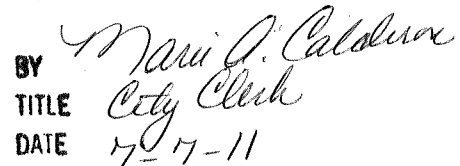 BY Marie A. Calderon
TITLE City Clerk
DATE 7-7-11